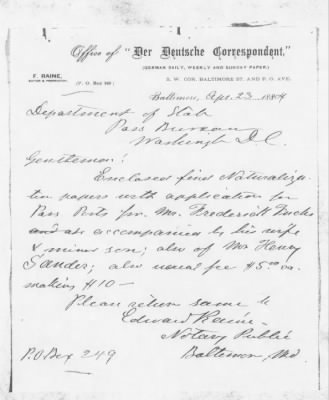 Office of "Der Deutsche Correspondent,"
(GERMAN DAILY, WEEKLY AND SUNDAY PAPER,)
F. RAINE,
EDITOR & PROPRIETOR.
(P. O. Box
S. W. COR. BALTIMORE ST. AND P. O. AVE.
Baltimore, Apr. 23 1884
Department of State
Pass Bureau
Washington D.C.
Gentlemen:
Enclosed find Naturaliza-
tion papers with application for
Pass Ports for Mr. Frederick Fuchs
and as accompanied by his wife
& minor son; also of Mr Henry
Sander; also usual fee $5.00 ea.
making $10 —
Please return same to
Edward Raine
Notary Public
P.O Box 249 Baltimore, Md.